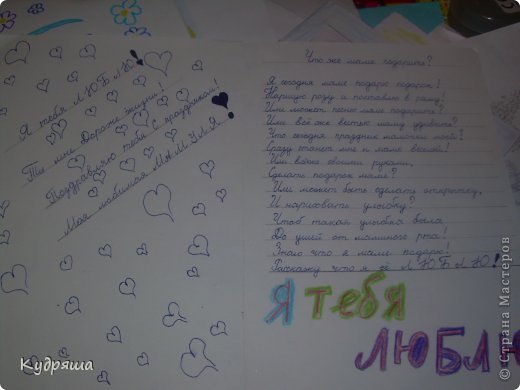 Я тебя ЛЮБЛЮ!
Ты мне дороже жизни!
Поздравляю тебя с праздником!
Моя любимая МАМУЛЯ!
Что же маме подарить?
Я сегодня маме подарю подарок!
Нарисую розу и поставлю в рамку!
Или может песню маме подарить?
Или всё же вестью маму удивить?
Что сегодня праздник мамочки моей!
Сразу станет мне и маме веселей!
Или своими руками,
Сделать подарок маме?
Или может быть сделать открытку,
И нарисовать улыбку?
Чтоб такая улыбка была
До ушей от маминого рта!
Знаю что я маме подарю!
Расскажу что я её ЛЮБЛЮ!
Я ТЕБЯ
ЛЮБЛЮ
Кудряша
© Страна Мастеров